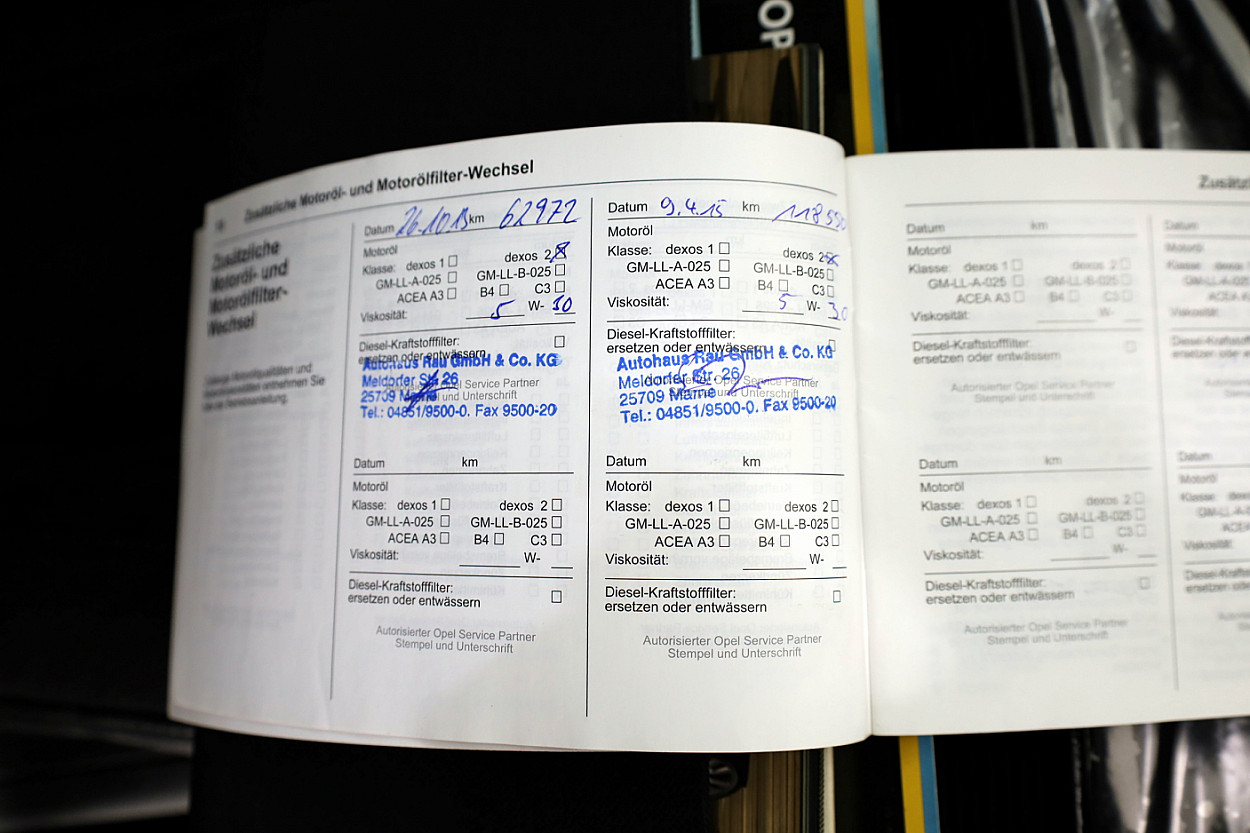 OP
Zusätzliche Motoröl- und Motorölfilter-Wechsel
Zusätzliche
Motoröl- und
Motorölfilter-
Wechsel
Datum 26.10.13 km 62972
Motoröl
Klasse: dexos 1 dexos 2
GM-LL-A-025 GM-LL-B-025
ACEA A3 B4 C3
Viskosität: 5 W- 30
Diesel-Kraftstofffilter:
ersetzen oder entwässern
Autohaus Rau GmbH & Co. KG
Meldorfer Str. 26
25709 Marne
Tel.: 04851/9500-0. Fax 9500-20
Opel Service Partner
und Unterschrift
Datum km
Motoröl
Klasse: dexos 1 dexos 2
GM-LL-A-025 GM-LL-B-025
ACEA A3 B4 C3
Viskosität: W-
Diesel-Kraftstofffilter:
ersetzen oder entwässern
Autorisierter Opel Service Partner
Stempel und Unterschrift
Datum 9.4.15 km
Motoröl
Klasse: dexos 1 dexos 2
GM-LL-A-025 GM-LL-B-025
ACEA A3 B4 C3
Viskosität: 5 W- 30
Diesel-Kraftstofffilter:
ersetzen oder entwässern
Autohaus Rau GmbH & Co. KG
Meldorfer Str. 26
25709 Marne
Tel.: 04851/9500-0. Fax 9500-20
Opel Service Partner
und Unterschrift
Datum km
Motoröl
Klasse: dexos 1 dexos 2
GM-LL-A-025 GM-LL-B-025
ACEA A3 B4 C3
Viskosität: W-
Diesel-Kraftstofffilter:
ersetzen oder entwässern
Autorisierter Opel Service Partner
Stempel und Unterschrift
Datum km
Motoröl
Klasse: dexos 1 dexos 2
GM-LL-A-025 GM-LL-B-025
ACEA A3 B4 C3
Viskosität: W-
Diesel-Kraftstofffilter:
ersetzen oder entwässern
Autorisierter Opel Service Partner
Stempel und Unterschrift
Datum km
Motoröl
Klasse: dexos 1 dexos 2
GM-LL-A-025 GM-LL-B-025
ACEA A3 B4 C3
Viskosität: W-
Diesel-Kraftstofffilter:
ersetzen oder entwässern
Autorisierter Opel Service Partner
Stempel und Unterschrift